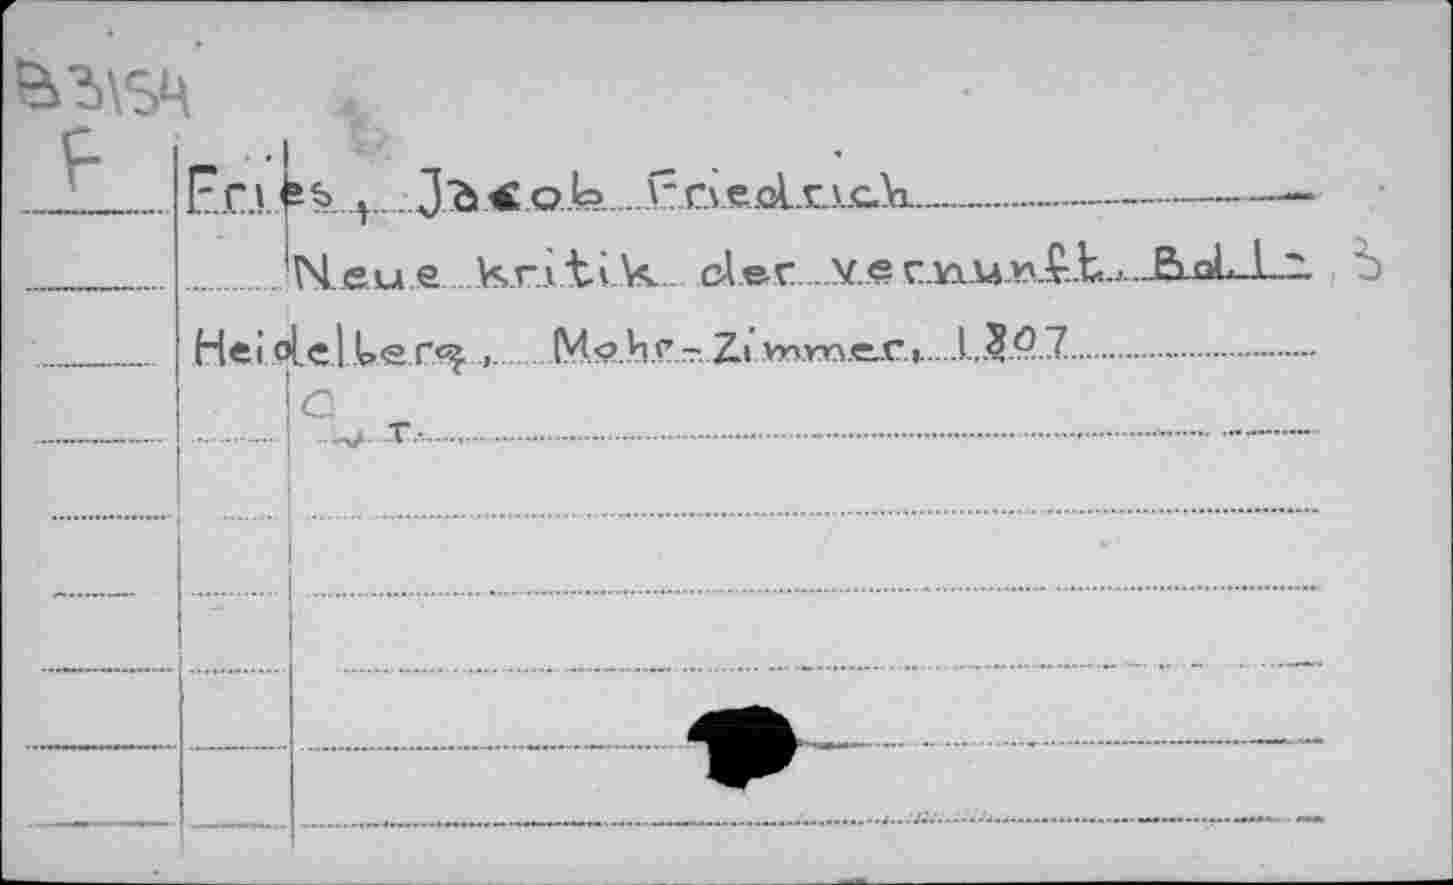 B3154
F
Fries, Jacob Friedrich
Neue kritik der vernunft. Bd. 1-3
Heidelberg, Mohr-Zimmer, 1807